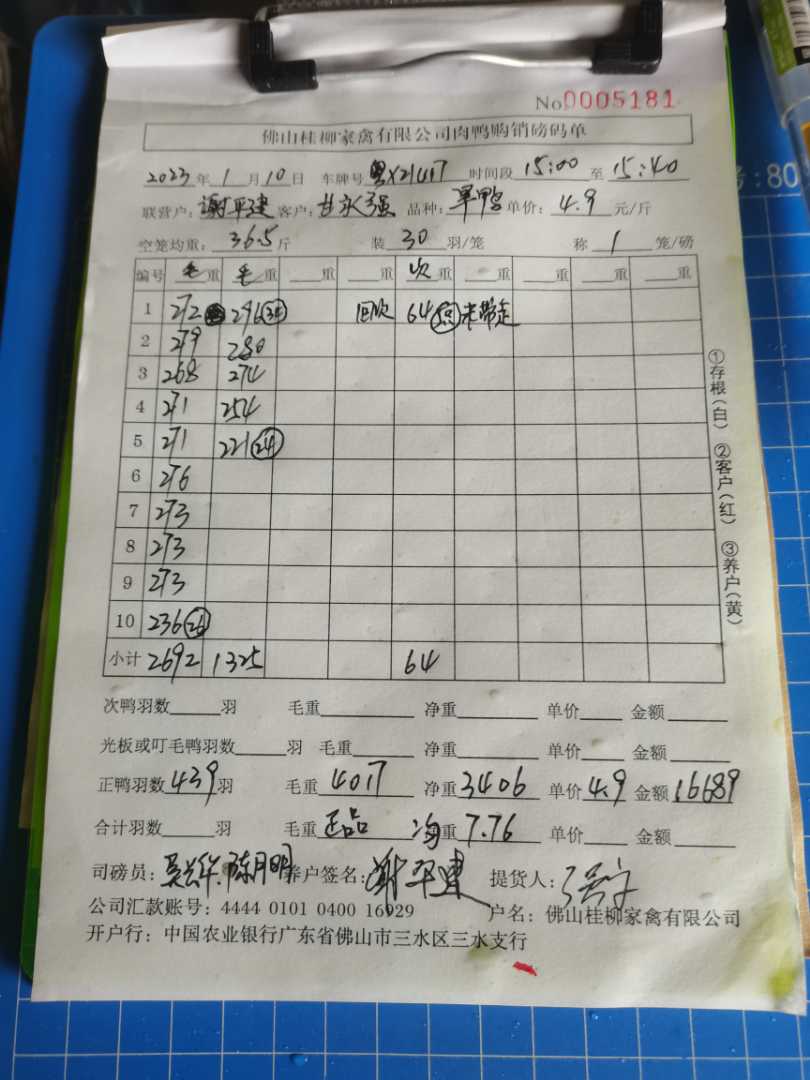 No0005181
佛山桂柳家禽有限公司肉鸭购销磅码单
2023年1月10日 车牌号粤X21417 时间段15:00至15:40
联营户:谢平建 客户:甘永强 品种:旱鸭 单价:4.9元/斤
空笼均重:36.5斤 装30羽/笼 称1笼/磅
编号 毛重 毛重 重 重 次重 重 重 重 重
1 272 296(34) 回收 64 未带走
2 279 280
3 268 274
4 271 254
5 271 221(24)
6 276
7 273
8 273
9 273
10 236(26)
小计 2692 1325 64
①存根(白) ②客户(红) ③养户(黄)
次鸭羽数 羽 毛重 净重 单价 金额
光板或叮毛鸭羽数 羽 毛重 净重 单价 金额
正鸭羽数439羽 毛重4017 净重3406 单价4.9 金额16689
合计羽数 羽 毛重正品 均重7.76 单价 金额
司磅员:陈月明 养户签名:谢平建 提货人:
公司汇款账号:4444 0101 0400 16929 户名:佛山桂柳家禽有限公司
开户行:中国农业银行广东省佛山市三水区三水支行
:80